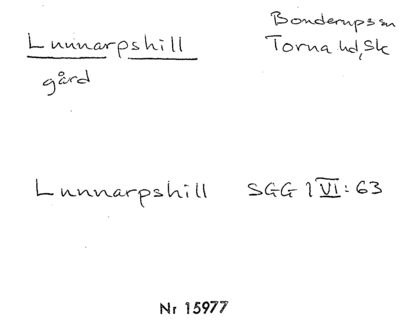 Lunnarpshill
Bonderupssn
Torna hd, Sk
gård
Lunnarpshill SGG 1 VI: 63
Nr 15977